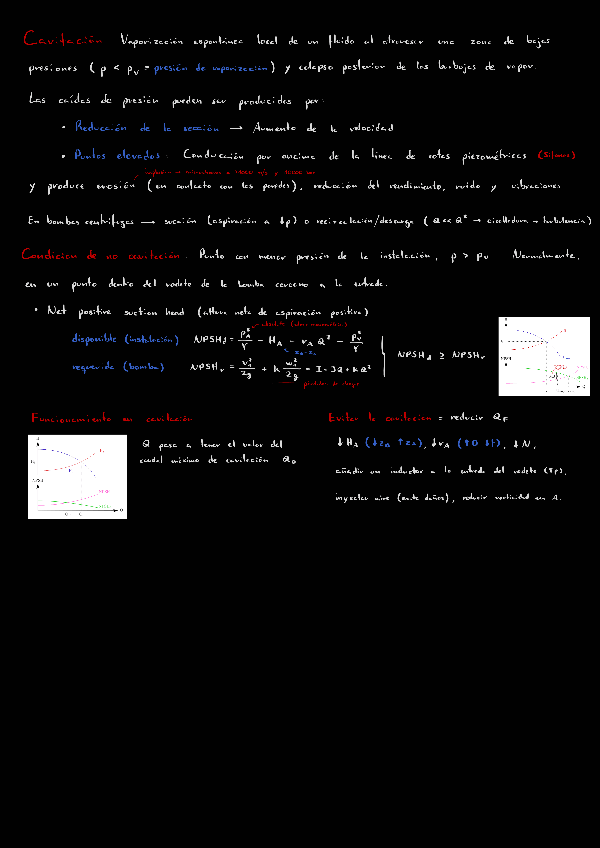 Cavitación Vaporización espontánea local de un fluido al atravesar una zona de bajas
presiones ( p < pv = presión de vaporización ) y colapso posterior de las burbujas de vapor.
Las caídas de presión pueden ser producidas por:
• Reducción de la sección → Aumento de la velocidad
• Puntos elevados: Conducción por encima de la línea de cotas piezométricas (Sifones)
y produce erosión (en contacto con las paredes), reducción del rendimiento, ruido y vibraciones
En bombas centrífugas → succión (aspiración a ↓p) o recirculación/descarga ( Q << Q* → cizalladura → turbulencia)
Condición de no cavitación: Punto con menor presión de la instalación, p > pv Normalmente,
en un punto dentro del rodete de la bomba cercano a la entrada.
• Net positive suction head (altura neta de aspiración positiva)
disponible (instalación) NPSHd = pA*/γ - HA - rA Q² - pv*/γ
requerida (bomba) NPSHr = v1²/2g + k w1²/2g = I - JQ + KQ²
NPSHd ≥ NPSHr
Funcionamiento en cavitación
Q pasa a tener el valor del
caudal máximo de cavitación Q0
Evitar la cavitación = reducir QF
↓HA (↓zB ↑zA), ↓rA (↑D ↓f), ↓N,
añadir un inductor a la entrada del rodete (↑I),
inyectar aire (evita daños), reducir verticidad en A.